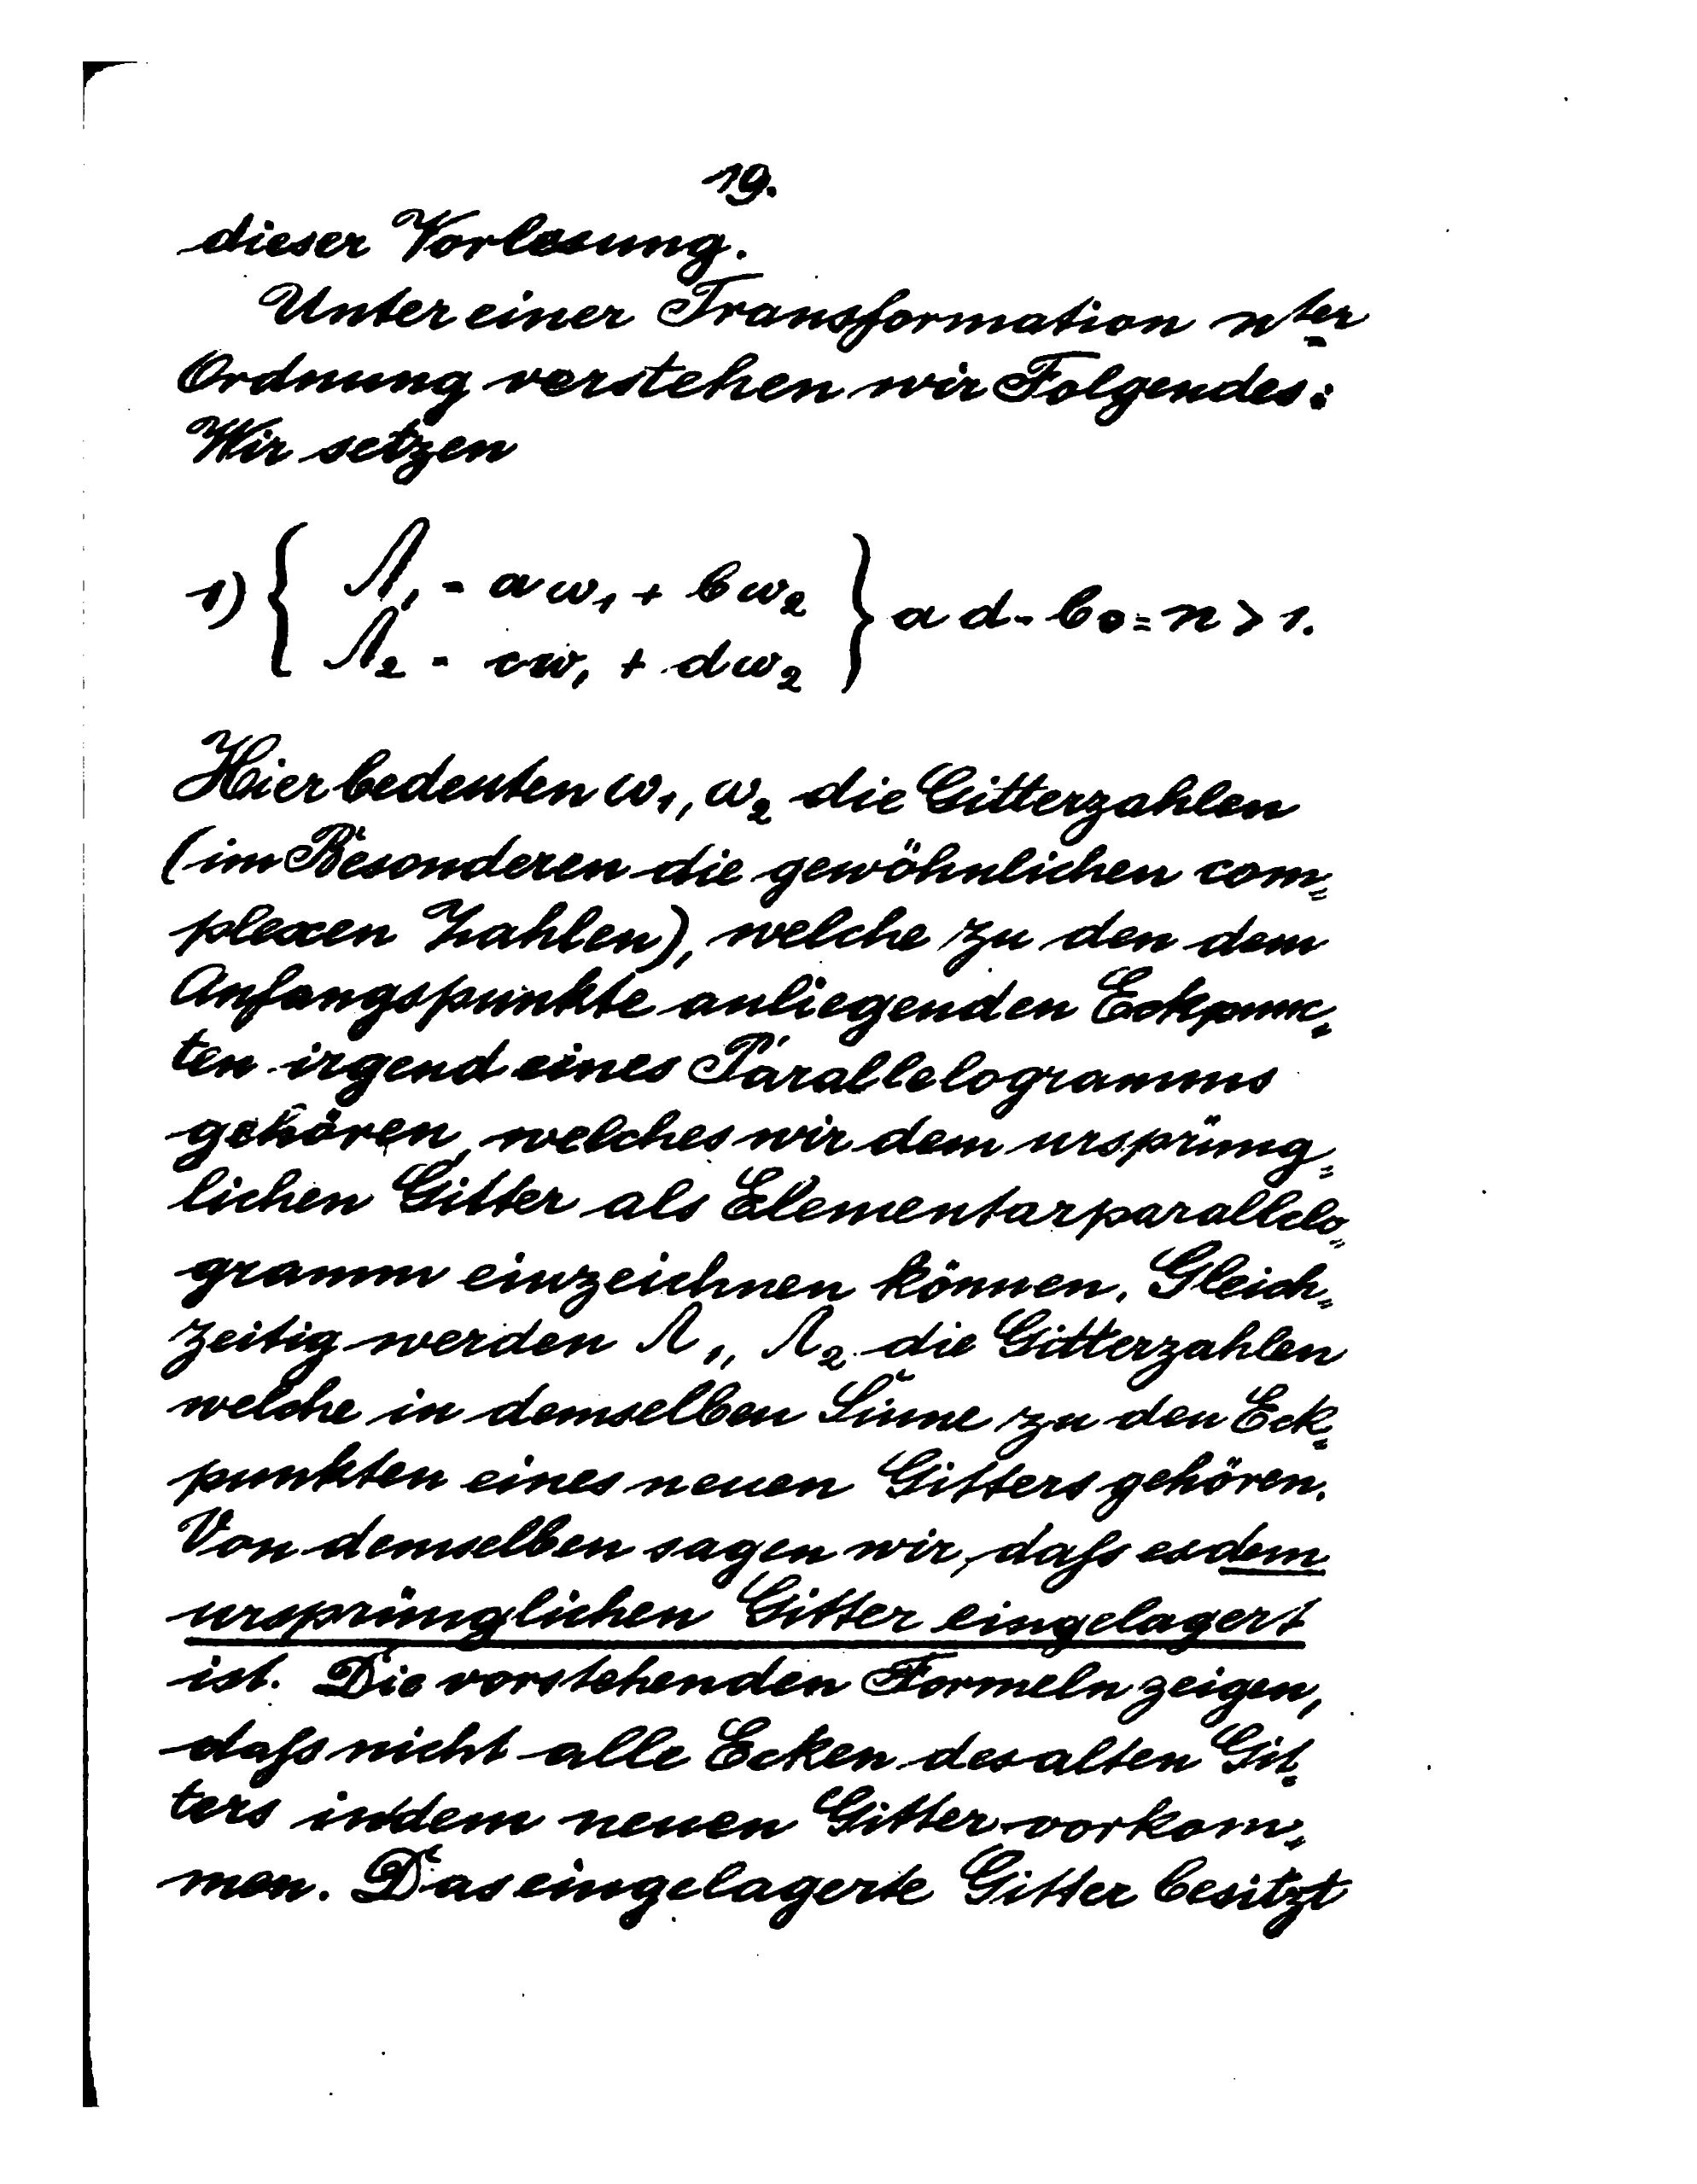 19.
dieser Vorlesung.
Unter einer Transformation nter
Ordnung verstehen wir Folgendes:
Wir setzen
1) { Λ₁ = aω₁ + bω₂ } ad - bc = n > 1.
Λ₂ = cω₁ + dω₂
Hier bedeuten ω₁, ω₂ die Gitterzahlen
(im Besonderen die gewöhnlichen com=
plexen Zahlen), welche zu den dem
Anfangspunkte anliegenden Eckpunk=
ten irgend eines Parallelogramms
gehören, welches wir dem ursprüng=
lichen Gitter als Elementarparallelo=
gramm einzeichnen können. Gleich=
zeitig werden Λ₁, Λ₂ die Gitterzahlen
welche in demselben Sinne zu den Eck=
punkten eines neuen Gitters gehören.
Von demselben sagen wir, daſs es dem
ursprünglichen Gitter eingelagert
ist. Die vorstehenden Formeln zeigen,
daſs nicht alle Ecken des alten Git=
ters in dem neuen Gitter vorkom=
men. Das eingelagerte Gitter besitzt